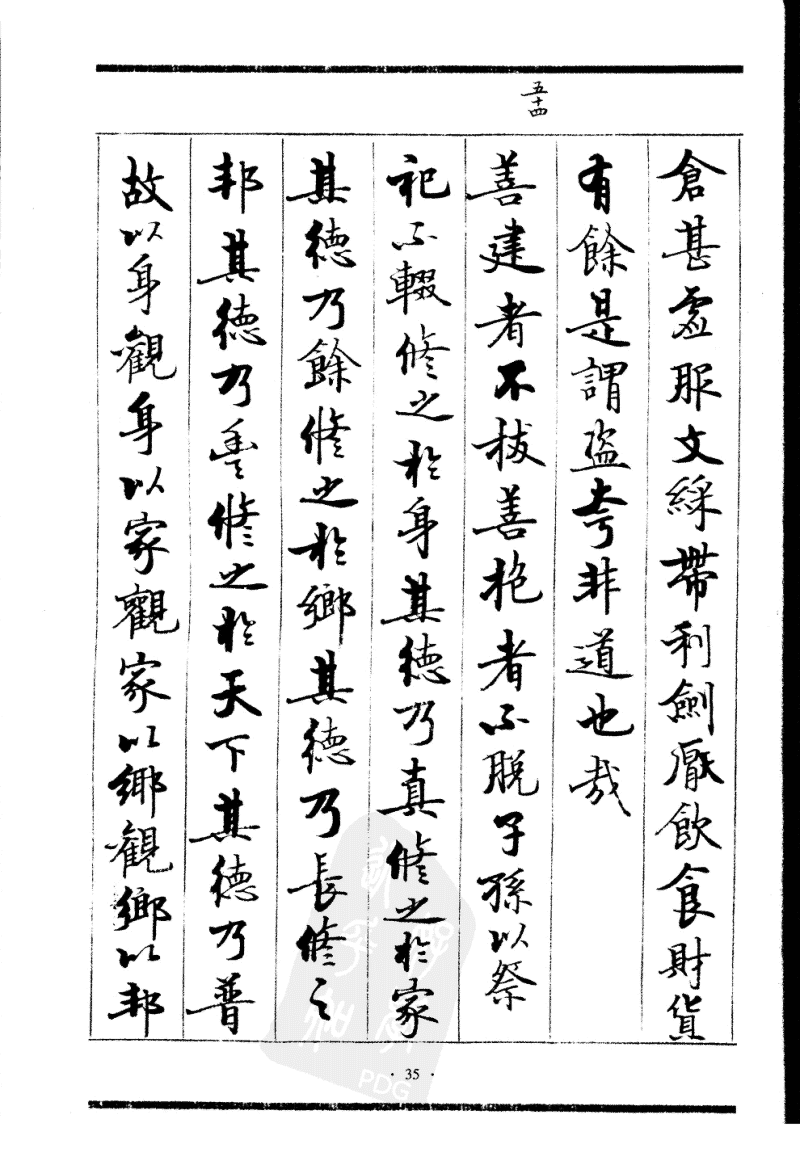 五十四
倉甚虛服文綵帶利劍厭飲食財貨
有餘是謂盜夸非道也哉
善建者不拔善抱者不脫子孫以祭
祀不輟修之於身其德乃真修之於家
其德乃餘修之於鄉其德乃長修之
邦其德乃豐修之於天下其德乃普
故以身觀身以家觀家以鄉觀鄉以邦
· 35 ·
PDG